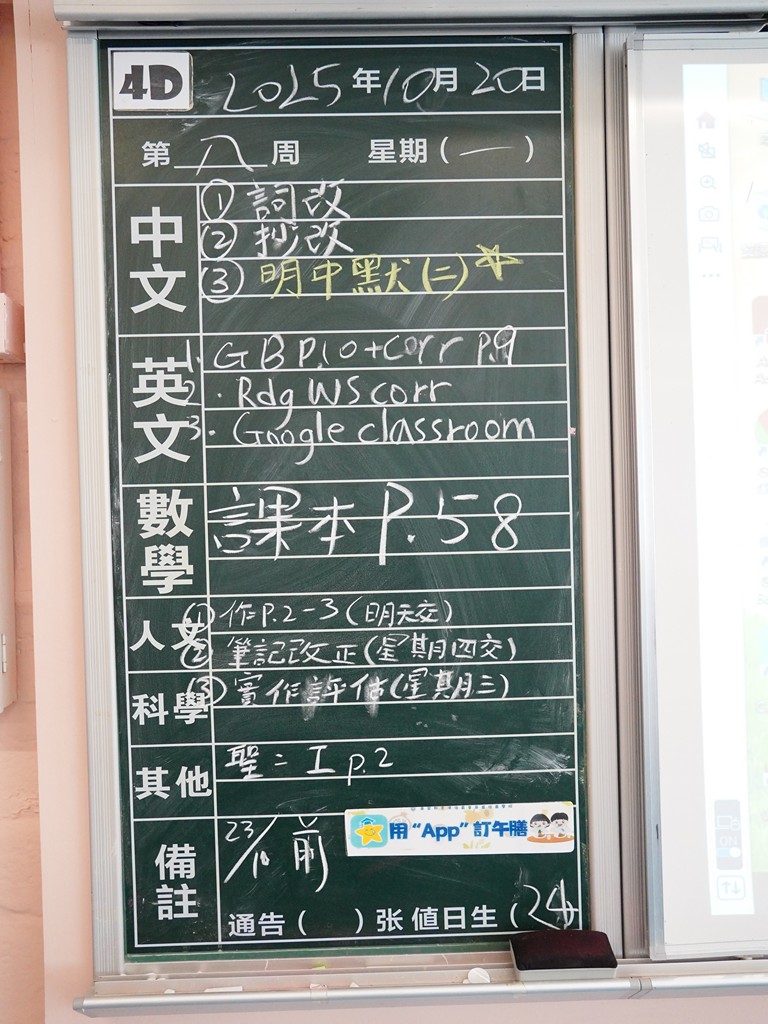 4D 2025年10月20日
第八周 星期(一)
中文
① 詞改
② 抄改
③ 明中默(二)☆
英文
1. GB P.10+corr P.9
2. Rdg WS corr
3. Google classroom
數學
課本 P.58
人文
① 作P.2-3(明天交)
② 筆記改正(星期四交)
科學
③ 實作評估(星期三)
其他
聖= I p.2
備註
23/10前
用“App”訂午膳
通告( )张 值日生(24)
ON